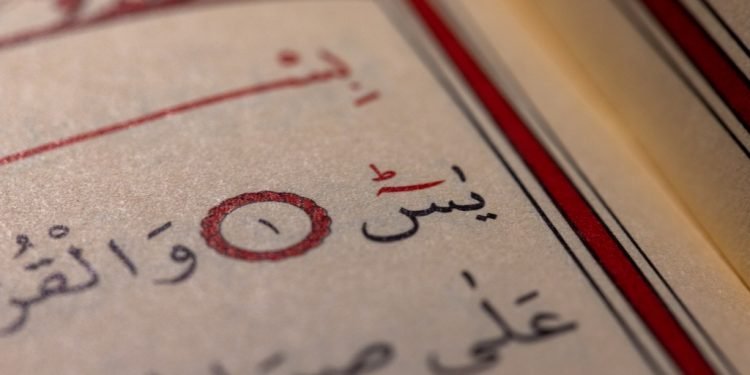 بِسْ
يٰسٓؕ ١ وَالْقُرْ
عَلٰى